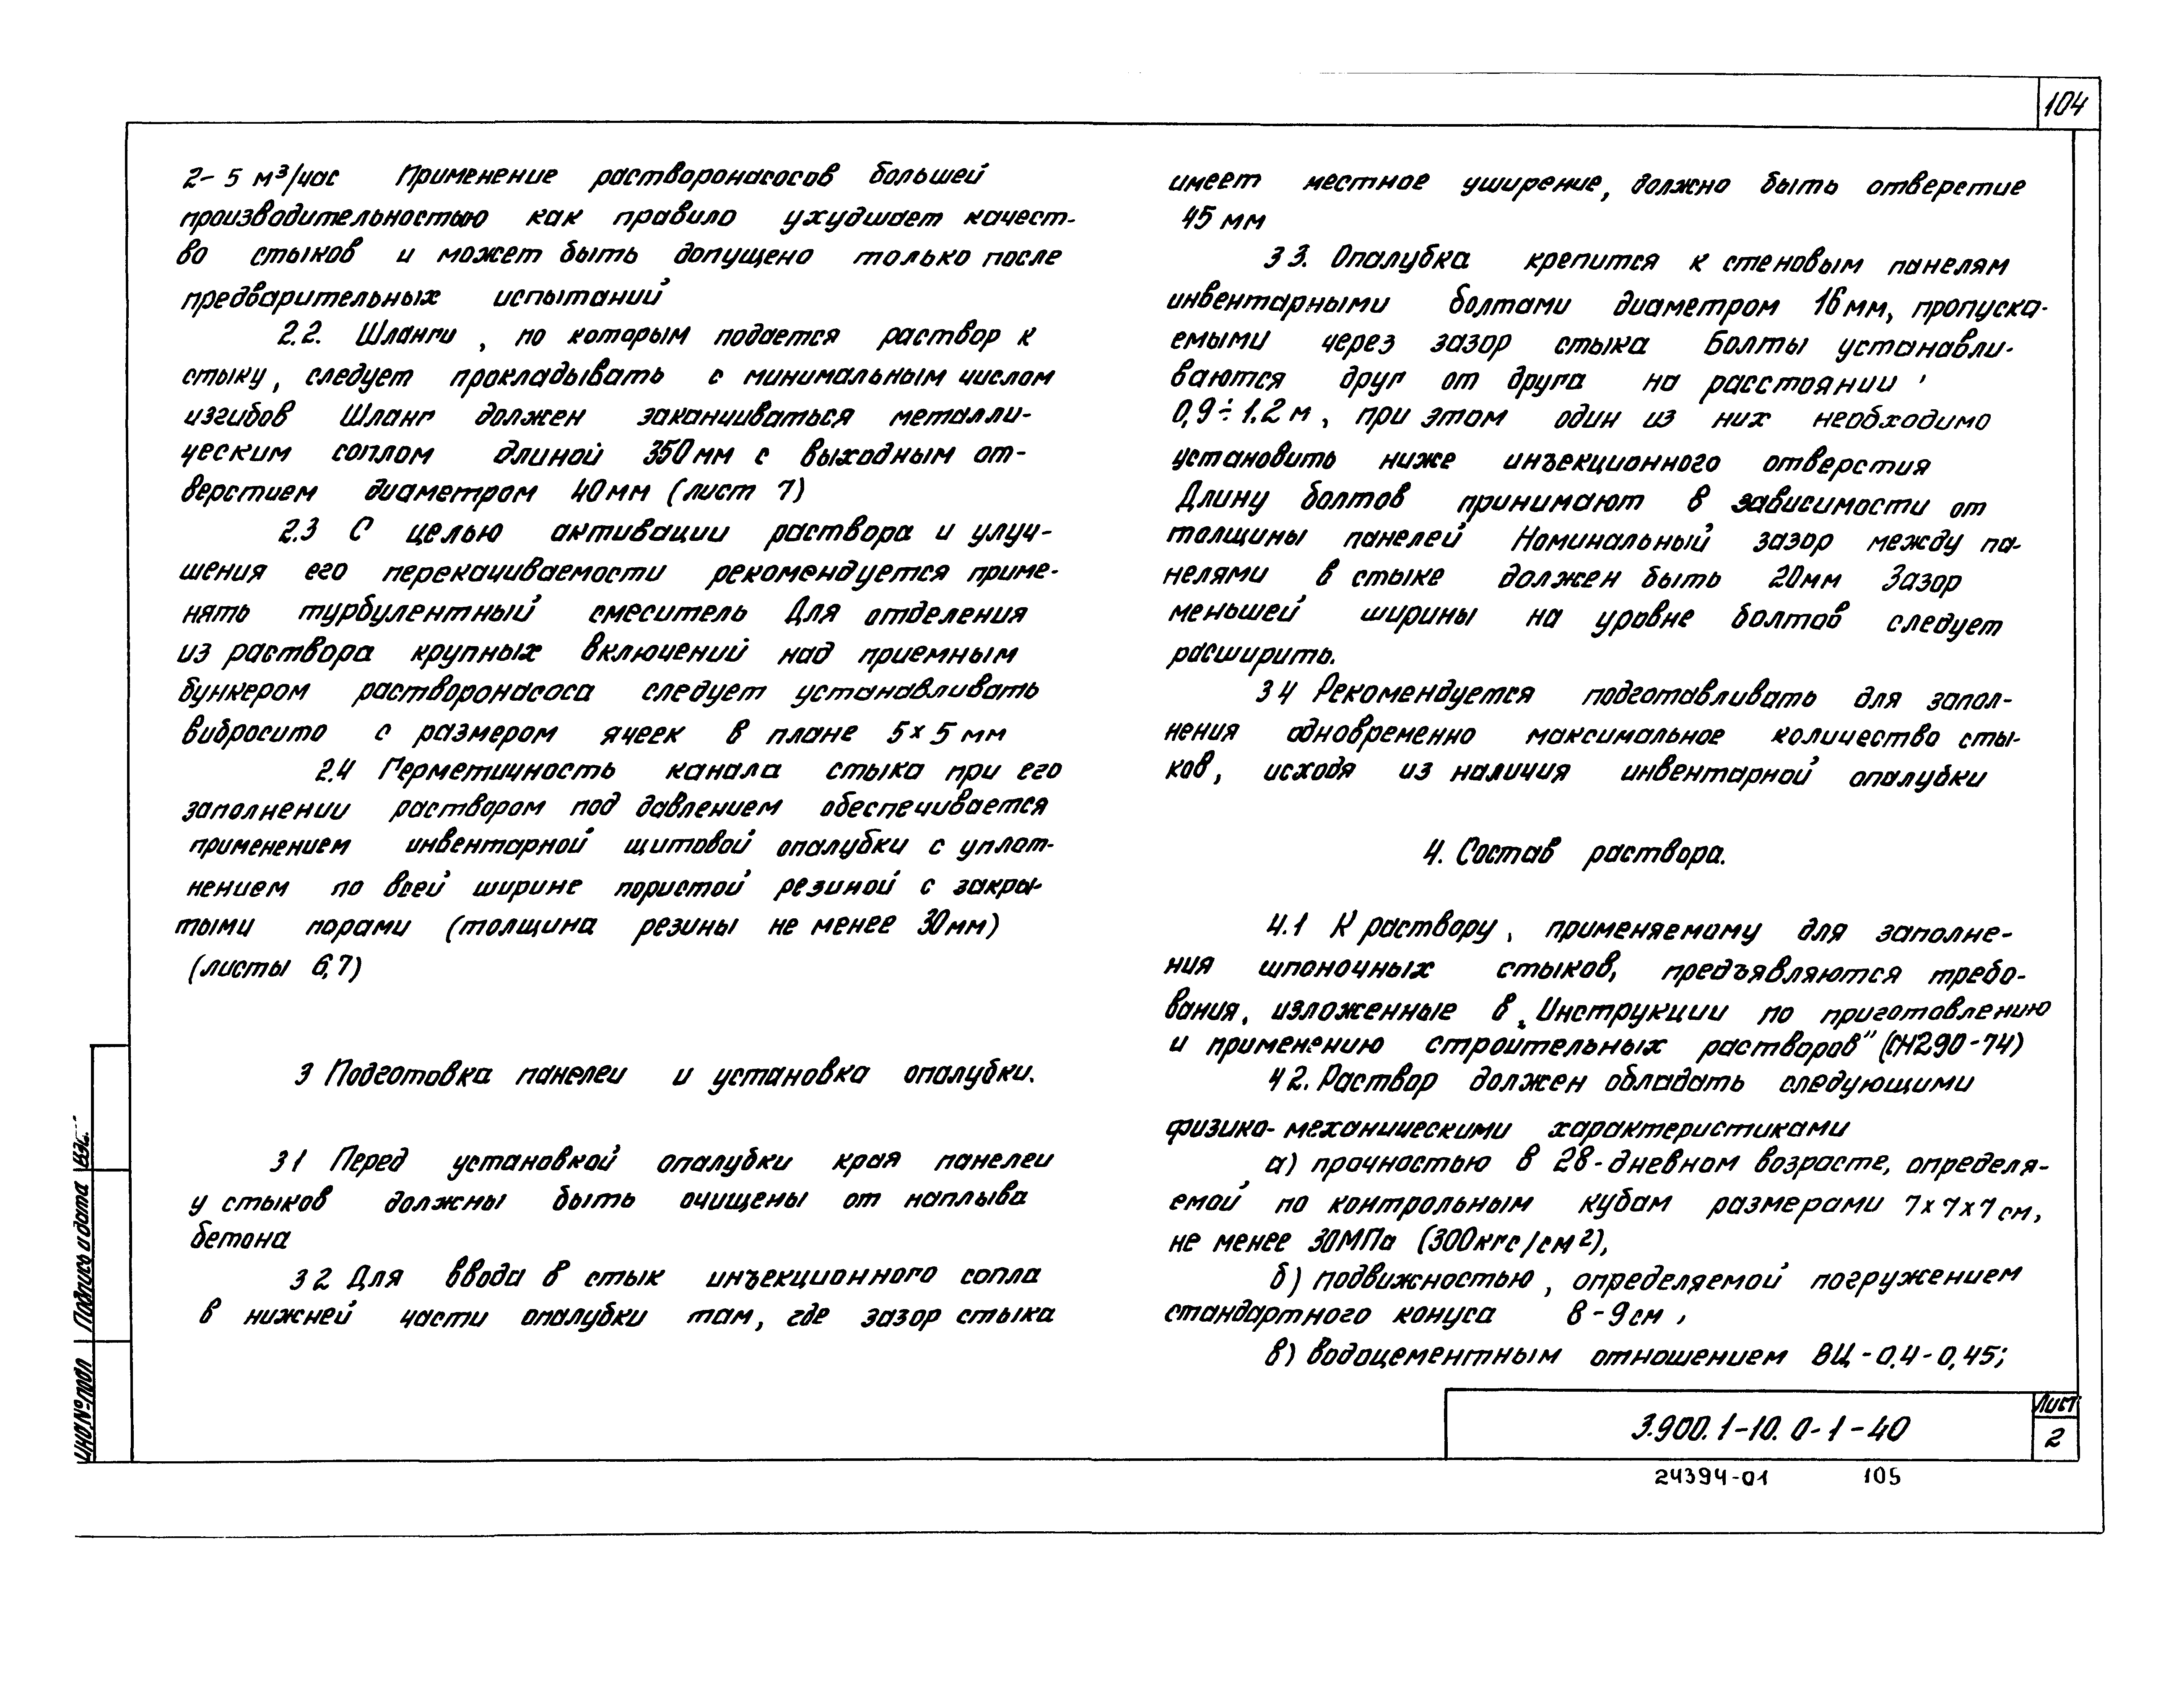 104
2-5 м³/час Применение растворонасосов большей
производительностью как правило ухудшает качест-
во стыков и может быть допущено только после
предварительных испытаний
2.2. Шланги, по которым подается раствор к
стыку, следует прокладывать с минимальным числом
изгибов Шланг должен заканчиваться металли-
ческим соплом длиной 350мм с выходным от-
верстием диаметром 40мм (лист 7)
2.3 С целью активации раствора и улуч-
шения его перекачиваемости рекомендуется приме-
нять турбулентный смеситель Для отделения
из раствора крупных включений над приемным
бункером растворонасоса следует устанавливать
вибросито с размером ячеек в плане 5×5 мм
2.4 Герметичность канала стыка при его
заполнении раствором под давлением обеспечивается
применением инвентарной щитовой опалубки с уплот-
нением по всей ширине пористой резиной с закры-
тыми порами (толщина резины не менее 30мм)
(листы 6,7)
3 Подготовка панелеи и установка опалубки.
31 Перед установкой опалубки края панелеи
у стыков должны быть очищены от наплыва
бетона
32 Для ввода в стык инъекционного сопла
в нижней части опалубки там, где зазор стыка
имеет местное уширение, должно быть отверстие
45 мм
3 3. Опалубка крепится к стеновым панелям
инвентарными болтами диаметром 16мм, пропуска-
емыми через зазор стыка Болты устанавли-
ваются друг от друга на расстоянии
0,9÷1.2м, при этом один из них необходимо
установить ниже инъекционного отверстия
Длину болтов принимают в зависимости от
толщины панелей Номинальный зазор между па-
нелями в стыке должен быть 20мм Зазор
меньшей ширины на уровне болтов следует
расширить.
34 Рекомендуется подготавливать для запол-
нения одновременно максимальное количество сты-
ков, исходя из наличия инвентарной опалубки
4. Состав раствора.
4.1 К раствору, применяемому для заполне-
ния шпоночных стыков, предъявляются требо-
вания, изложенные в „Инструкции по приготовлению
и применению строительных растворов" (СН290-74)
42. Раствор должен обладать следующими
физико-механическими характеристиками
а) прочностью в 28-дневном возрасте, определя-
емой по контрольным кубам размерами 7×7×7см,
не менее 30МПа (300кгс/см²),
б) подвижностью, определяемой погружением
стандартного конуса 8-9см,
в) водоцементным отношением ВЦ-0.4-0,45;
3.900.1-10.0-1-40
Лист
2
24394-01 105
Подпись и дата
Инв№подл